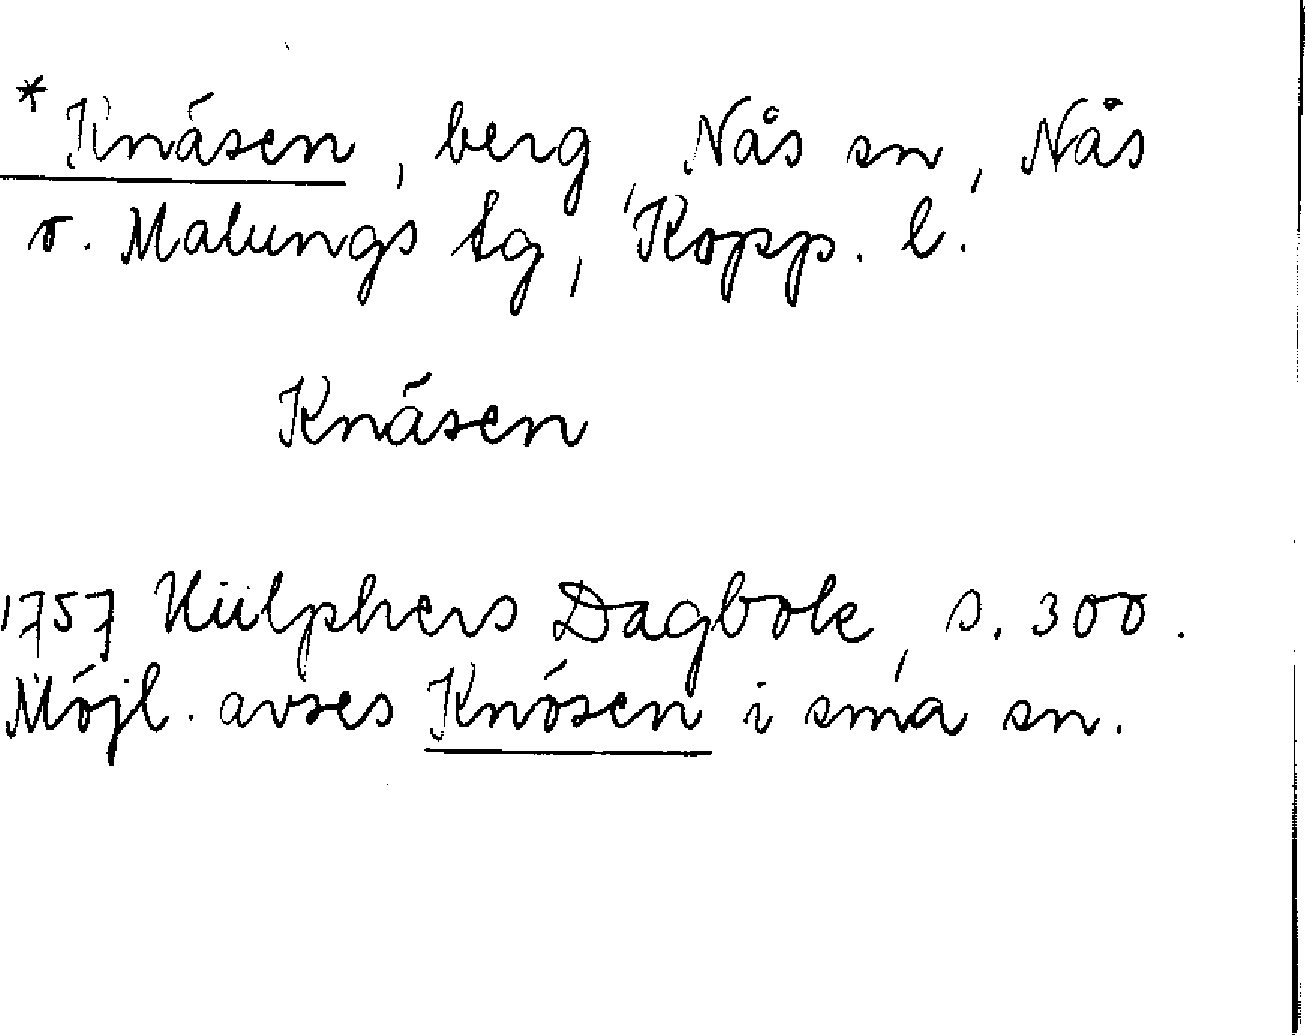 * Knäsen, berg, Nås sn, Nås
o. Malungs tg, Kopp. l.
Knäsen
1757 Hülphers Dagbok, s. 300.
Möjl. avses Knösen i sma sn.